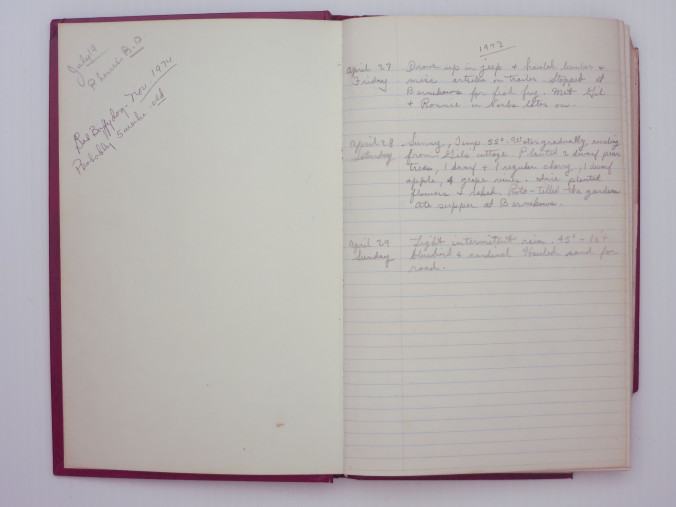 July 19
B.D
Buffydog. Nov. 1974
Probably 5 weeks old
1973
april 27 Drove up in jeep & hauled lumber &
Friday misc articles on trailer. Stopped at
for fish fry. Met Gil
& Ronnie in later on.
april 28 Sunny, Temp. 55°. Water gradually
Saturday from Gils cottage. Planted 2 dwarf pear
trees, 1 dwarf & 1 regular cherry, 1 dwarf
apple, 4 grape vines. planted
flowers & raked. Roto-tilled the garden
ate supper at
april 29 Light intermittent rain. 45°
Sunday bluebird & cardinal. Hauled sand for
road.